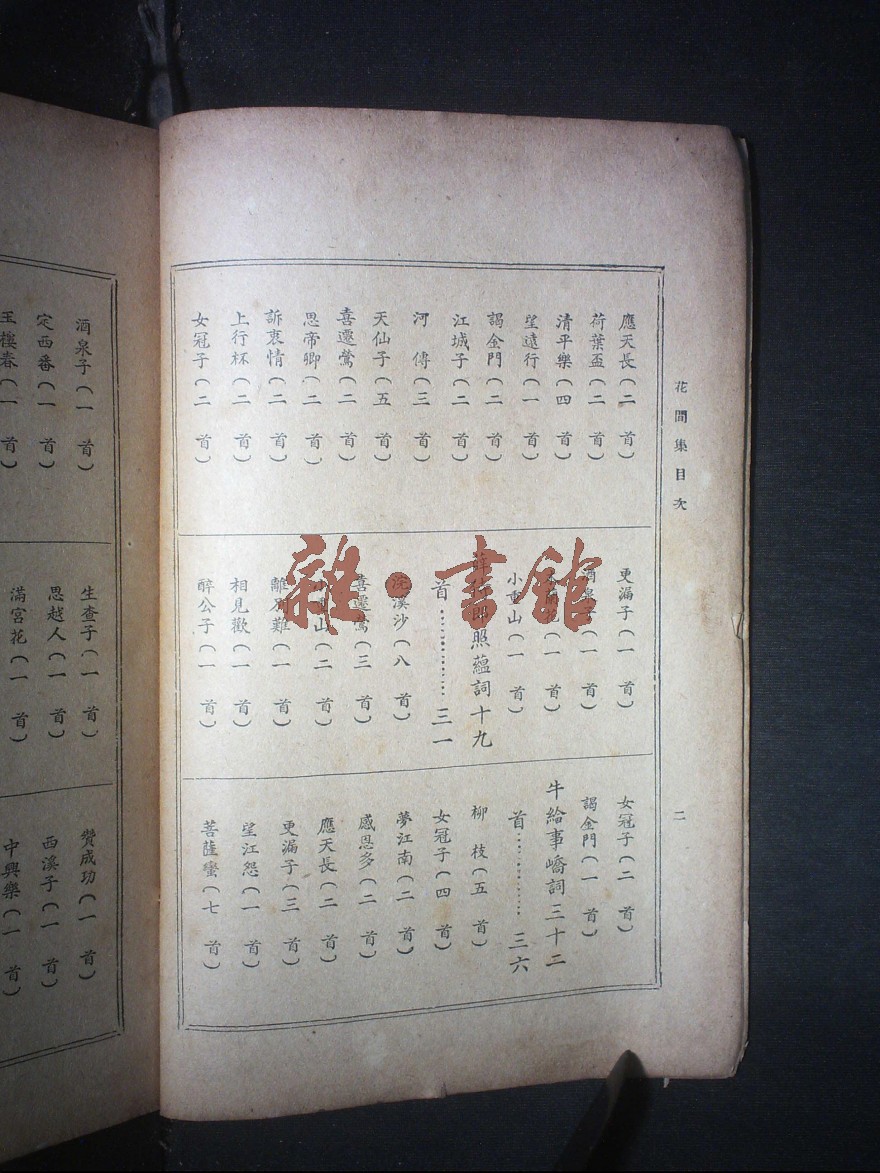 花間集目次
二
應天長(二首)
荷葉盃(二首)
清平樂(四首)
望遠行(一首)
謁金門(二首)
江城子(二首)
河傳(三首)
天仙子(五首)
喜遷鶯(二首)
思帝鄉(二首)
訴衷情(二首)
上行杯(二首)
女冠子(二首)
更漏子(一首)
酒泉子(一首)
(一首)
小重山(一首)
照蘊詞十九
首…………三一
浣溪沙(八首)
喜遷鶯(三首)
山(二首)
離別難(一首)
相見歡(一首)
醉公子(一首)
女冠子(二首)
謁金門(一首)
牛給事嶠詞三十二
首…………三六
柳枝(五首)
女冠子(四首)
夢江南(二首)
感恩多(二首)
應天長(二首)
更漏子(三首)
望江怨(一首)
菩薩蠻(七首)
酒泉子(一首)
定西番(一首)
玉樓春(一首)
生查子(一首)
思越人(一首)
滿宮花(一首)
贊成功(一首)
西溪子(一首)
中興樂(一首)
雜·書館